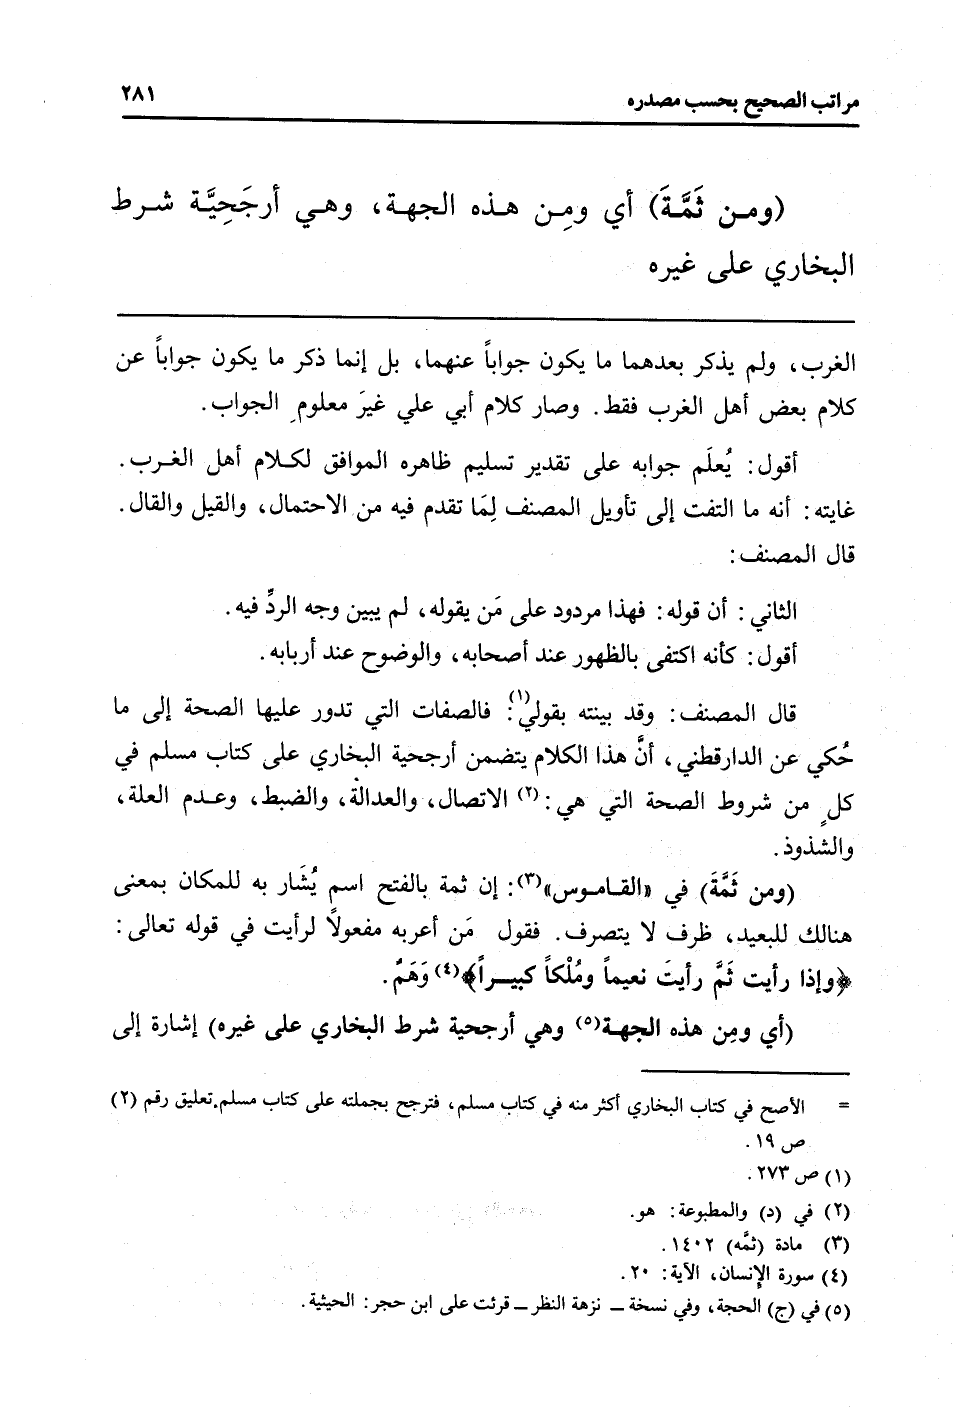 مراتب الصحيح بحسب مصدره ٢٨١
(ومـن ثَمَّـةَ) أي ومِـن هـذه الجهـة، وهـي أرجَحِيَّـة شـرط
البخاري على غيره
الغرب، ولم يذكر بعدهما ما يكون جواباً عنهما، بل إنما ذكر ما يكون جواباً عن
كلام بعض أهل الغرب فقط. وصار كلام أبي علي غيرَ معلومِ الجواب.
أقول: يُعلَم جوابه على تقدير تسليم ظاهره الموافق لكـلام أهل الغـرب.
غايته: أنه ما التفت إلى تأويل المصنف لِمَا تقدم فيه من الاحتمال، والقيل والقال.
قال المصنف:
الثاني: أن قوله: فهذا مردود على مَن يقوله، لم يبين وجه الردِّ فيه.
أقول: كأنه اكتفى بالظهور عند أصحابه، والوضوح عند أربابه.
قال المصنف: وقد بينته بقولي(١): فالصفات التي تدور عليها الصحة إلى ما
حُكي عن الدارقطني، أنَّ هذا الكلام يتضمن أرجحية البخاري على كتاب مسلم في
كلٍ من شروط الصحة التي هي:(٢) الاتصال، والعدالة، والضبط، وعـدم العلة،
والشذوذ.
(ومن ثَمَّةَ) في «القـامـوس»(٣): إن ثمة بالفتح اسم يُشَار به للمكان بمعنى
هنالك للبعيد، ظرف لا يتصرف. فقول مَن أعربه مفعولاً لرأيت في قوله تعالى:
﴿وإذا رأيت ثَمَّ رأيتَ نعيماً ومُلْكاً كبيـراً﴾(٤) وَهَمٌ.
(أي ومِن هذه الجهة(٥) وهي أرجحية شرط البخاري على غيره) إشارة إلى
= الأصح في كتاب البخاري أكثر منه في كتاب مسلم، فترجح بجملته على كتاب مسلم. تعليق رقم (٢)
ص ١٩.
(١) ص ٢٧٣.
(٢) في (د) والمطبوعة: هو.
(٣) مادة (ثمَّه) ١٤٠٢.
(٤) سورة الإنسان، الآية: ٢٠.
(٥) في (ج) الحجة، وفي نسخة ـ نزهة النظر ـ قرئت على ابن حجر: الحيثية.